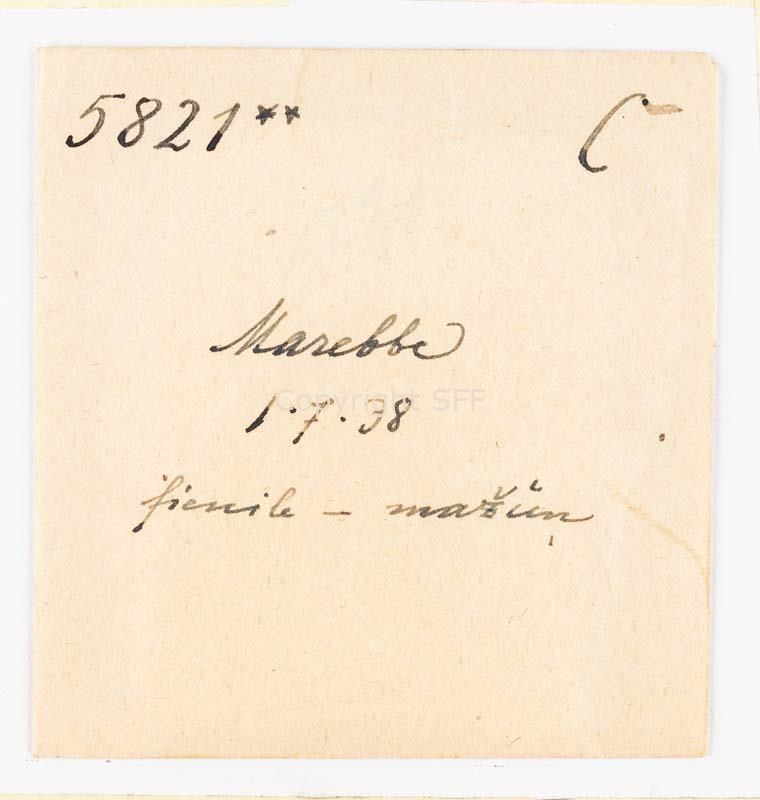 5821** C
Marebbe
Copyright SFF
1.7.38
fienile – mažün